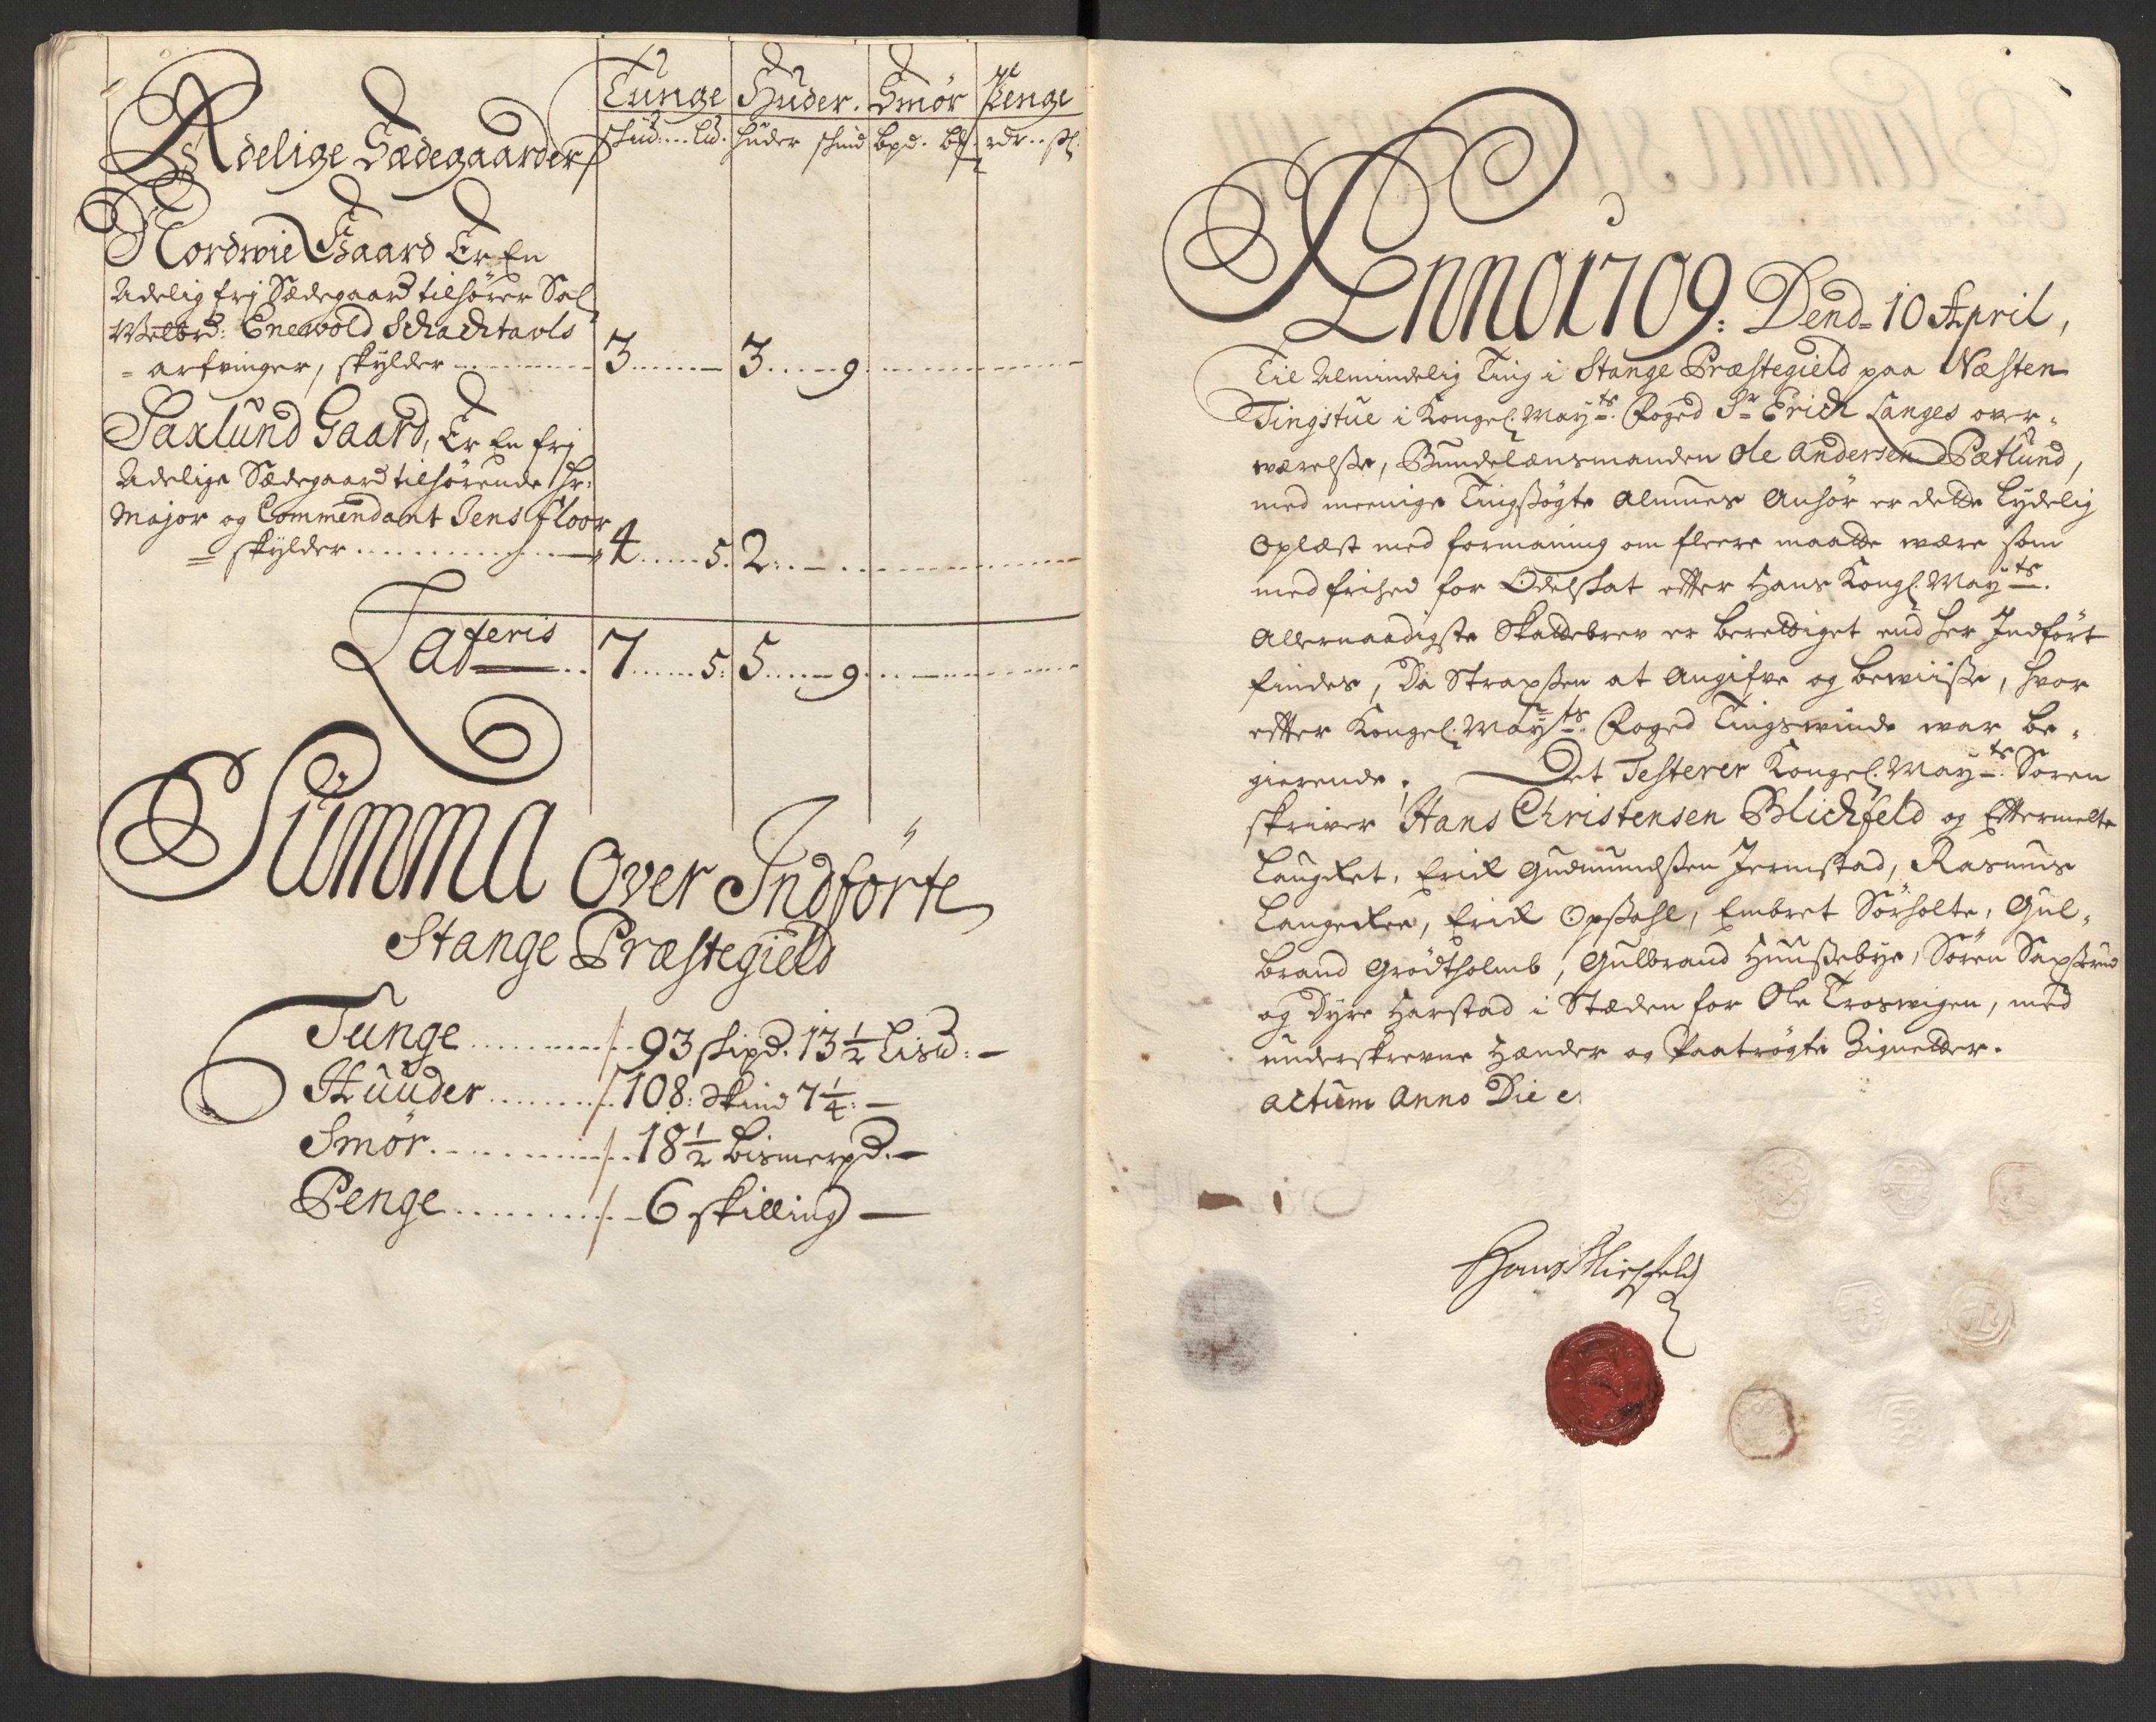 Tunge Huder. Smør Penge
Adelige Sædegaarder
skud: Ld. huder skind bpd. bß. rdr. ßl.
Nordwie Gaard Er En
Adelig frj Sædegaard tilhører Sal
Welbrd: Enewold Schachtavls
= arfvinger, skylder 3 3 9
Saxlund Gaard, Er En frj
Adelige Sædegaard tilhørende Hr:
Major og Commendant Jens Floor
= skylder 4 5. 2
Lateris 7 5: 5 9
Summa Over Indførte
Stange Præstegield
Tunge 93 skipd. 13½ Lisd: —
Huuder 108: skind 7¼: —
Smør 18½ bismerpd. —
Penge 6 skilling —
Anno 1709: Dend= 10 April,
Til Almindelig Ting i Stange Præstegield paa Næsten
Tingstue i Kongel: Mayts: Foged Sr Erich Langes over=
værelsse, Bundelænsmanden Ole Andersen Pætlund,
med meenige Tingssøgte Almues Anhør er dette lydelig
Oplæst med formaning om fleere maatte være som
med frihed for Odelskat efter Hans Kongl: Mayts.
Allernaadigste Skattebrev er berettiget end her Indført
findes, Da Strapsen at Angifve og bewiisse, hvor
efter Kongel: Mayts. Foged Tingswinde war be=
gierende. Det Testerer Kongel: Mayts: Soren
skriver Hans Christensen Blichfeld og Eftermelte
Laugret. Erick Gudmundssen Jermstad, Rasmus
Langerkee, Erick Opsahl, Embret Sørholte, Gul=
brand Grødtholmb, Gulbrand Huussebye, Søren Saxsrud
og Dyre Harstad i Stæden for Ole Troswigen, med
underskrevne Hænder og Paatrøgte Zignetter.
Actum Anno Die e.
Hans Blichfeld